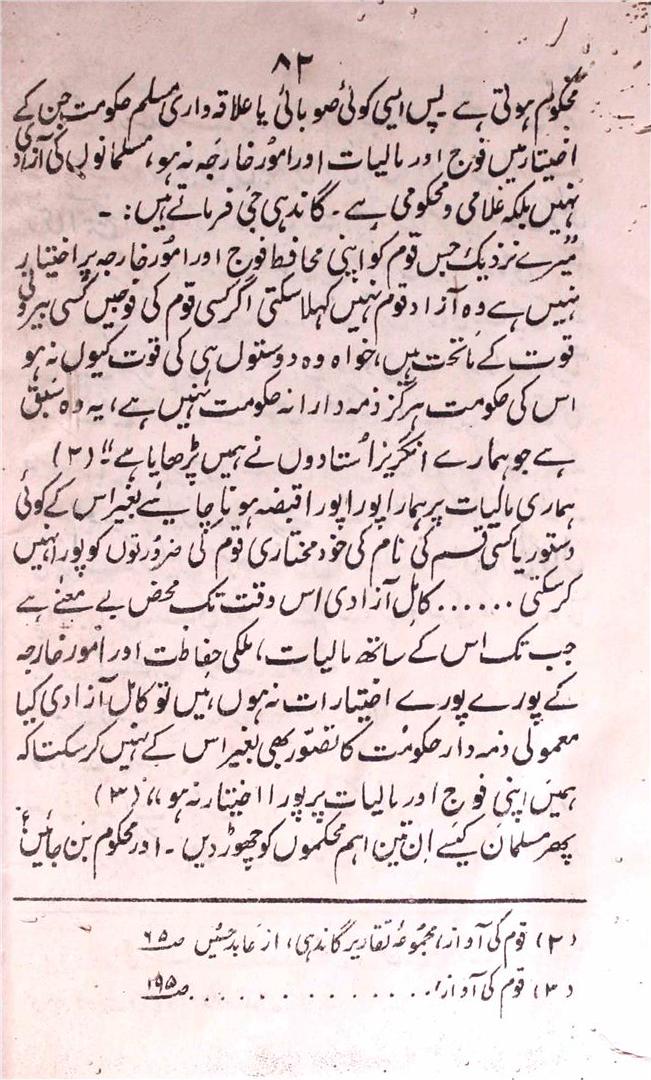 ۸۲
محکوم ہوتی ہے۔ پس ایسی کوئی صوبائی یا علاقہ داری مسلم حکومت جن کے
اختیار میں فوج اور مالیات اور امور خارجہ نہ ہو، مسلمانوں کی آزادی
نہیں بلکہ غلامی و محکومی ہے۔ گاندھی جی فرماتے ہیں:۔
"میرے نزدیک جس قوم کو اپنی محافظ فوج اور امور خارجہ پر اختیار
نہیں ہے وہ آزاد قوم نہیں کہلا سکتی اگر کسی قوم کی فوجیں کسی بیرونی
قوت کے ماتحت ہیں، خواہ وہ دوستوں ہی کی قوت کیوں نہ ہو
اس کی حکومت ہرگز ذمہ دارانہ حکومت نہیں ہے، یہ وہ سبق
ہے جو ہمارے انگریز استادوں نے ہمیں پڑھایا ہے" (۲)
ہماری مالیات پر ہمارا پورا پورا قبضہ ہونا چاہیئے بغیر اس کے کوئی
دستور یا کسی قسم کی نام کی خود مختاری قوم کی ضرورتوں کو پورا نہیں
کر سکتی ...... کامل آزادی اس وقت تک محض بے معنے ہے
جب تک اس کے ساتھ مالیات، ملکی حفاظت اور امور خارجہ
کے پورے پورے اختیارات نہ ہوں، میں تو کامل آزادی کیا
معمولی ذمہ دار حکومت کا تصور بھی بغیر اس کے نہیں کر سکتا کہ
ہمیں اپنی فوج اور مالیات پر پورا اختیار نہ ہو" (۳)
پھر مسلمان کیسے ان تین اہم محکموں کو چھوڑ دیں۔ اور محکوم بن جائیں؟
(۲) قوم کی آواز، مجموعہ تقاریر گاندھی، از عابد حسین ص ۶۵
(۳) قوم کی آواز، .............. ص ۱۹۵